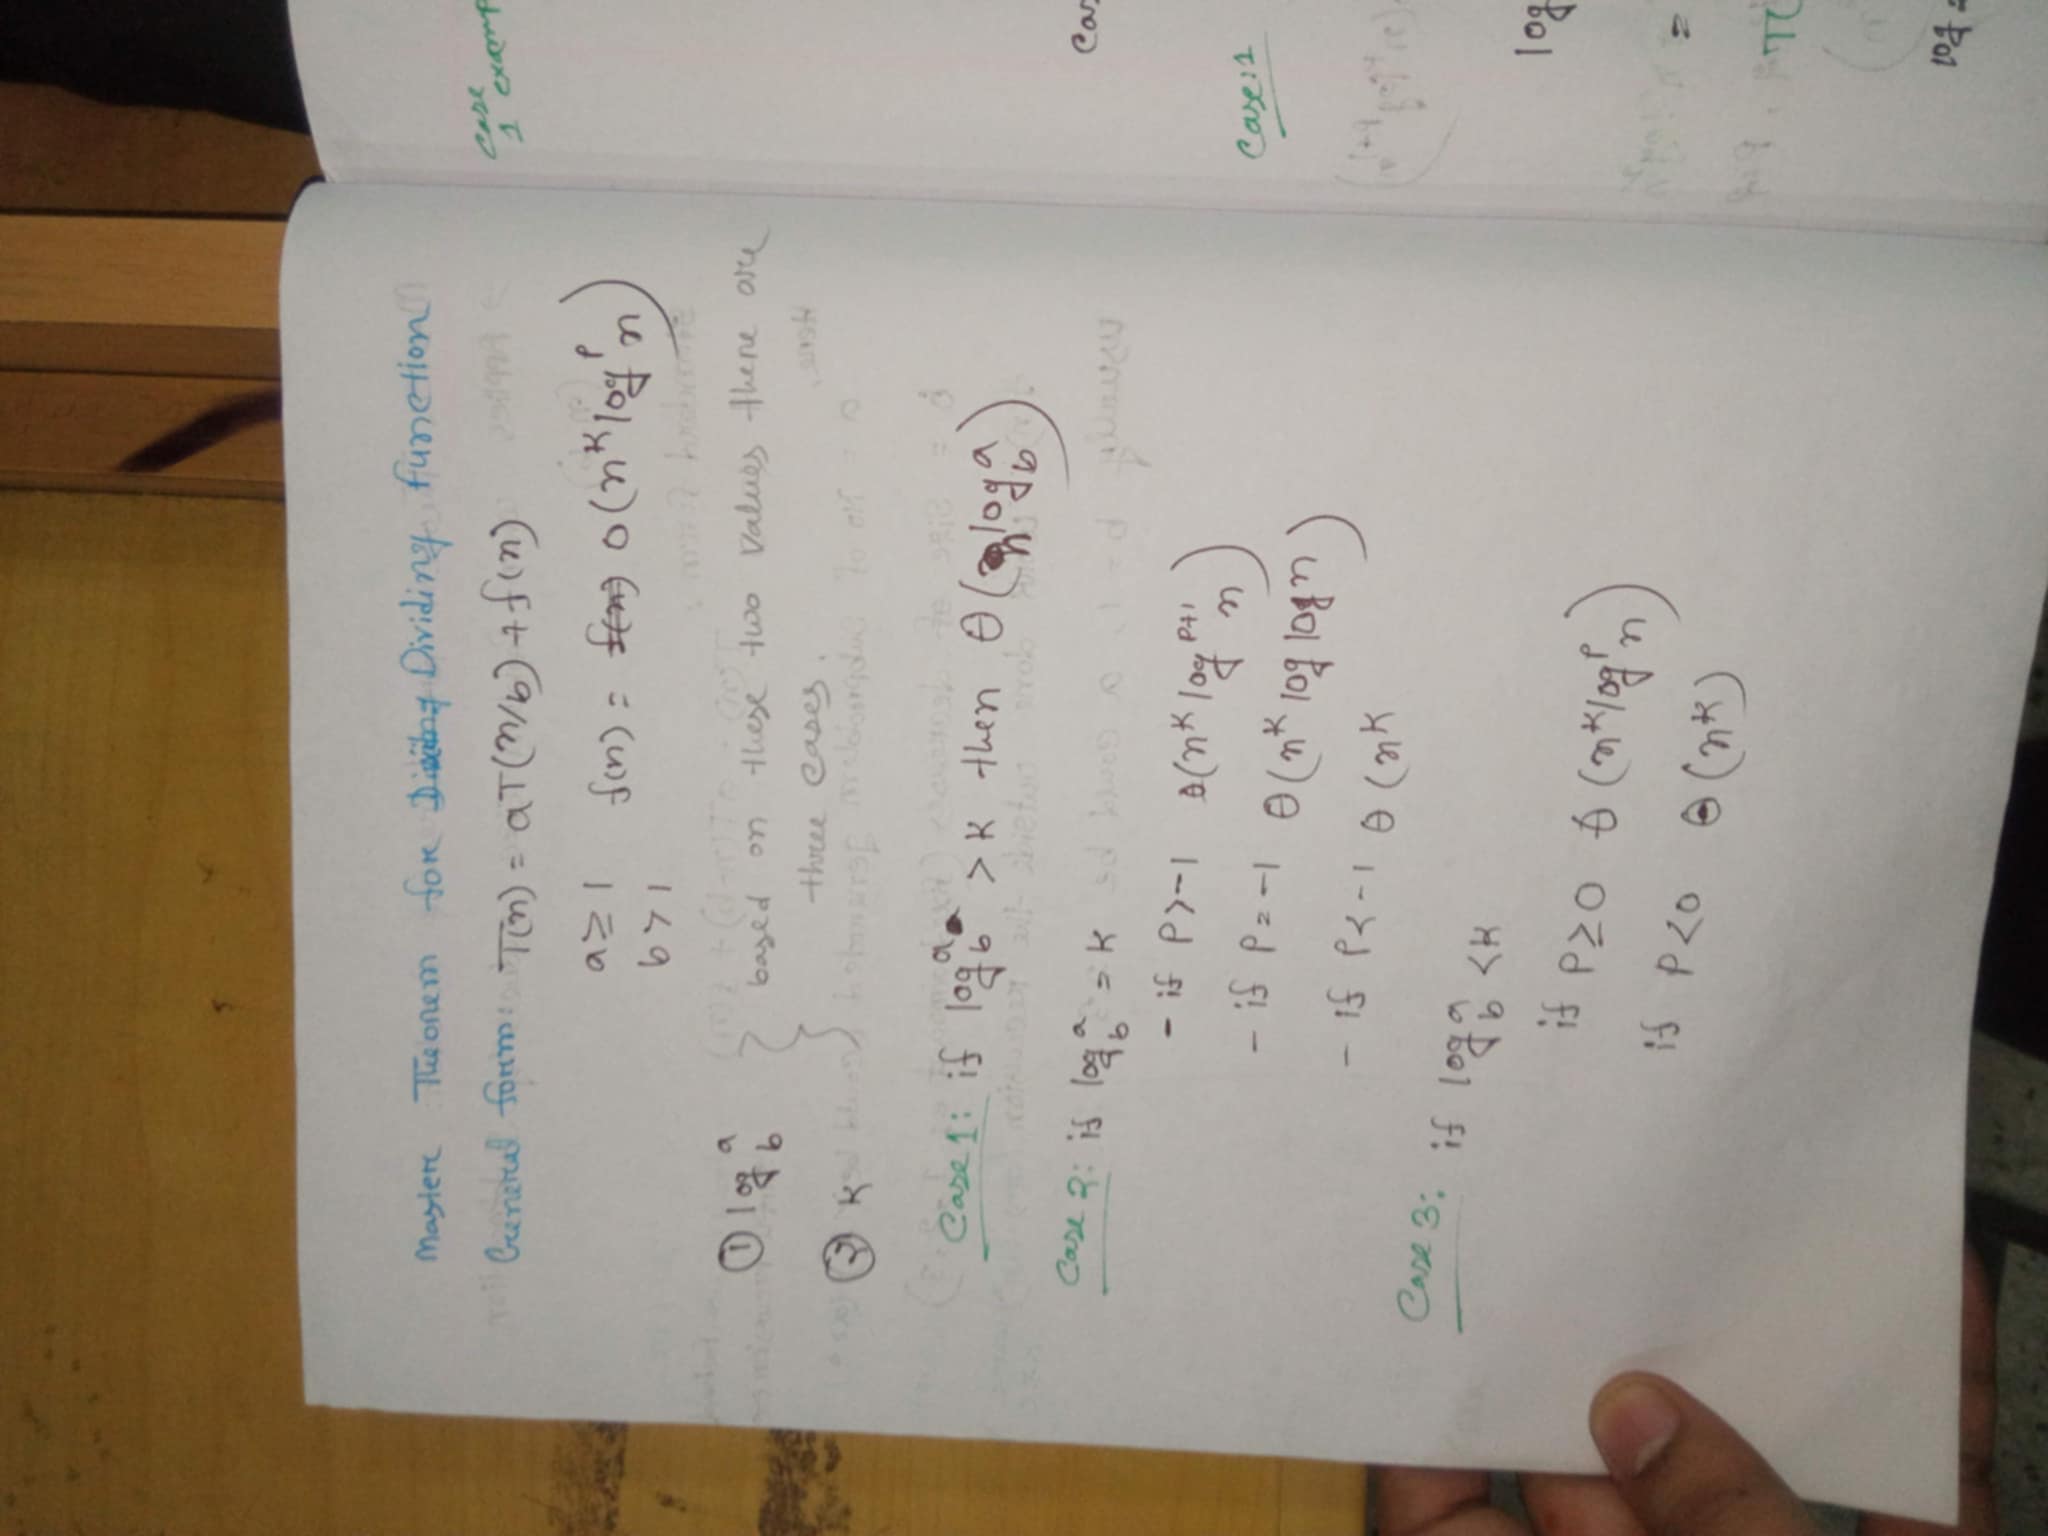 Master Theorem for Dividing Dividing function
General form: T(n) = aT(n/b) + f(n)
a ≥ 1 f(n) = f(n) O(n^k log^p n)
b > 1
① log_b^a } based on these two values there are
three cases.
② k
Case 1: if log_b^a > k then θ(n^log_b^a)
Case 2: if log_b^a = k
- if P>-1 θ(n^k log^p+1 n)
- if P=-1 θ(n^k log log n)
- if P<-1 θ(n^k
Case 3: if log_b^a < k
if P≥0 θ(n^k log^p n)
if P<0 θ(n^k)
Case
1 examp
Cas
Case:1
log
=
T(
log 2